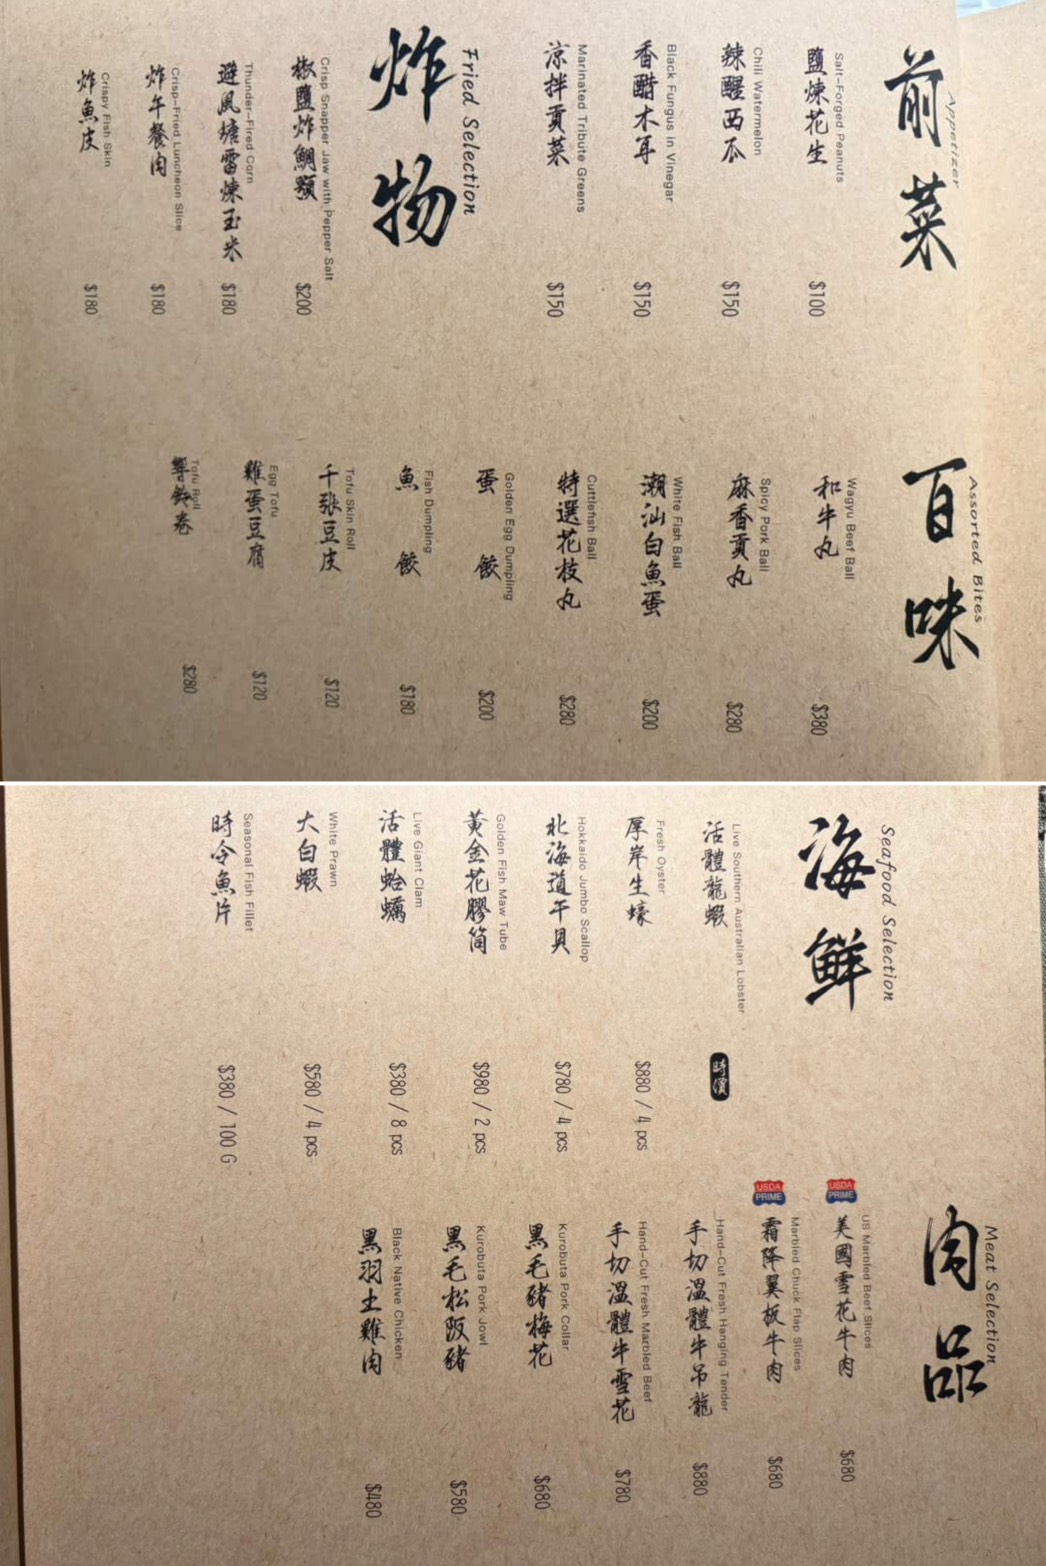 前菜
Appetizer
鹽煉花生
Salt-Forged Peanuts
$100
辣醒西瓜
Chili Watermelon
$150
香醋木耳
Black Fungus in Vinegar
$150
涼拌貢菜
Marinated Tribute Greens
$150
炸物
Fried Selection
椒鹽炸鯛顎
Crisp Snapper Jaw with Pepper Salt
$200
避風塘雷煉玉米
Thunder-Fired Corn
$180
炸午餐肉
Crisp-Fried Luncheon Slice
$180
炸魚皮
Crispy Fish Skin
$180
百味
Assorted Bites
和牛丸
Wagyu Beef Ball
$380
麻香貢丸
Spicy Pork Ball
$280
潮汕白魚蛋
White Fish Ball
$200
特選花枝丸
Cuttlefish Ball
$280
蛋餃
Golden Egg Dumpling
$200
魚餃
Fish Dumpling
$180
千張豆皮
Tofu Skin Roll
$120
雞蛋豆腐
Egg Tofu
$120
響鈴卷
Tofu Roll
$280
海鮮
Seafood Selection
活體龍蝦
Live Southern Australian Lobster
時價
厚岸生蠔
Fresh Oyster
$880 / 4 pcs
北海道干貝
Hokkaido Jumbo Scallop
$780 / 4 pcs
黃金花膠筒
Golden Fish Maw Tube
$980 / 2 pcs
活體蛤蠣
Live Giant Clam
$380 / 8 pcs
大白蝦
White Prawn
$580 / 4 pcs
時令魚片
Seasonal Fish Fillet
$380 / 100 G
肉品
Meat Selection
USDA
PRIME
美國雪花牛肉
US Marbled Beef Slices
$680
USDA
PRIME
霜降翼板牛肉
Marbled Chuck Flap Slices
$680
手切溫體牛吊龍
Hand-Cut Fresh Hanging Tender
$880
手切溫體牛雪花
Hand-Cut Fresh Marbled Beef
$780
黑毛豬梅花
Kurobuta Pork Collar
$680
黑毛松阪豬
Kurobuta Pork Jowl
$580
黑羽土雞肉
Black Native Chicken
$480